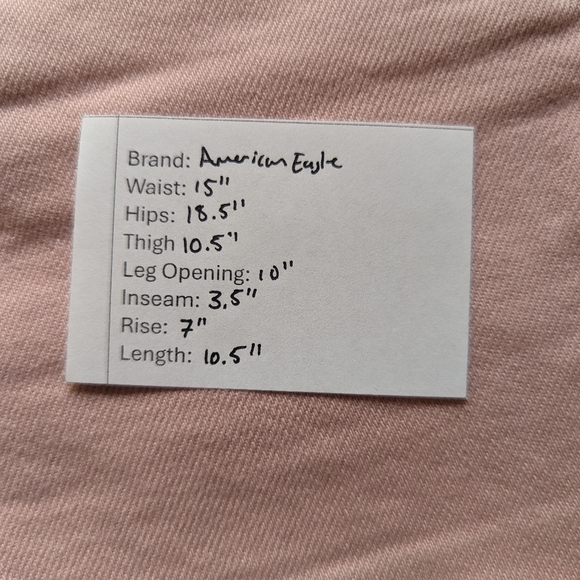 Brand: American Eagle
Waist: 15"
Hips: 18.5"
Thigh 10.5"
Leg Opening: 10"
Inseam: 3.5"
Rise: 7"
Length: 10.5"